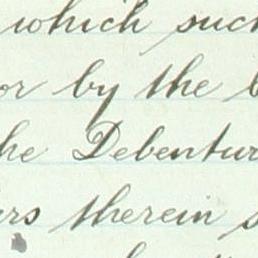 which such
or by the
the Debentur
ers therein